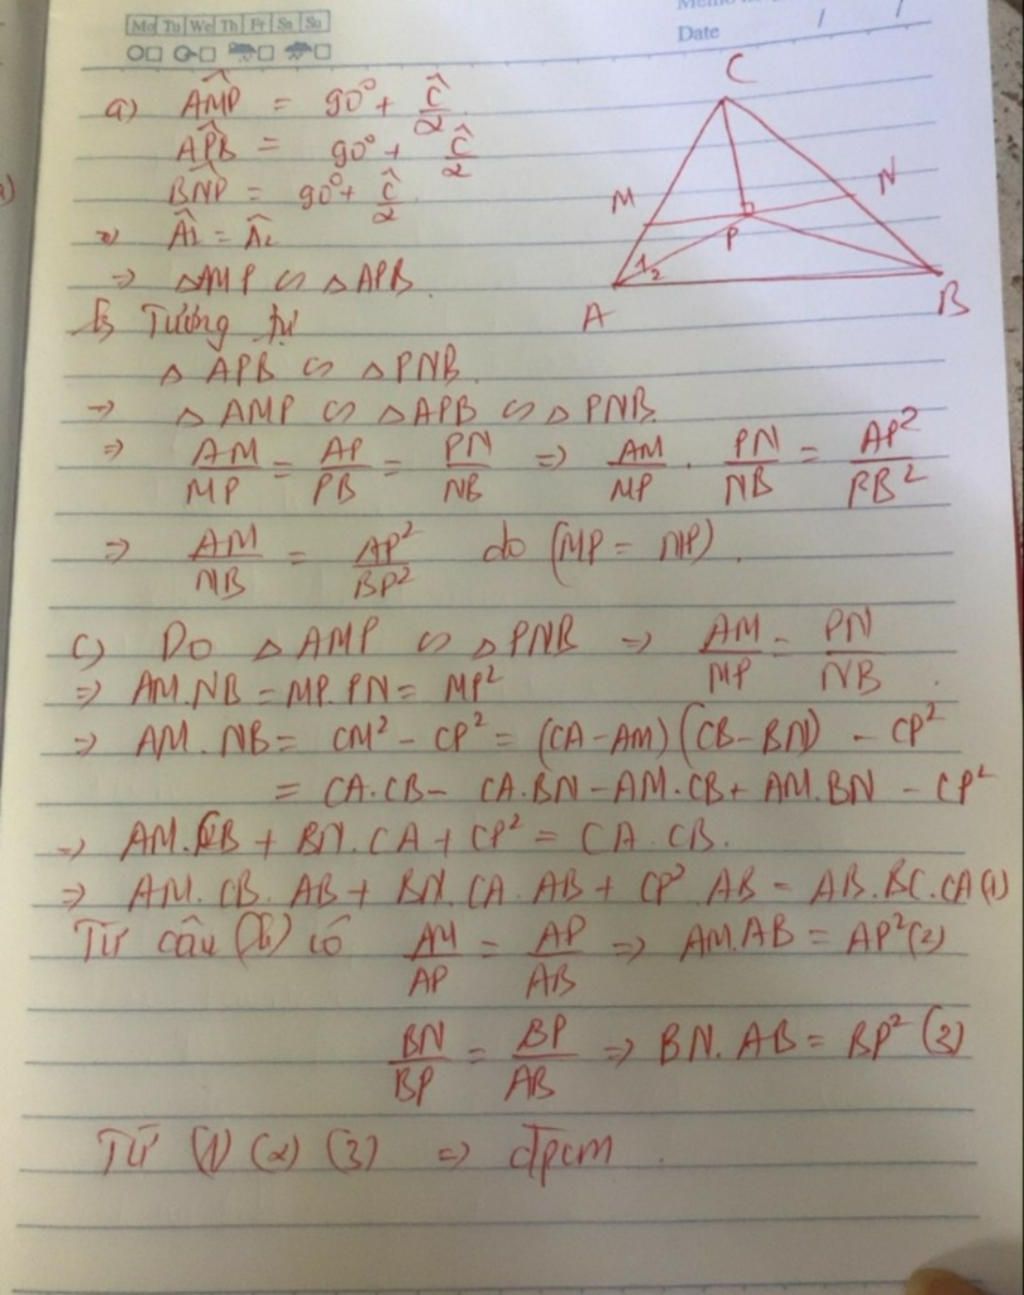 Mo Tu We Th Fr Sa Su
Memo
Date / /
C
M
N
P
1
2
A
B
a) AMP^ = 90° + Ĉ/2
APB^ = 90° + Ĉ/2
BNP^ = 90° + Ĉ/2
Â1 = Â2
⇒ △AMP ∽ △APB.
b, Tương tự
△ APB ∽ △PNB.
⇒ △AMP ∽ △APB ∽ △PNB.
⇒ AM/MP = AP/PB = PN/NB ⇒ AM/MP . PN/NB = AP²/PB²
⇒ AM/NB = AP²/BP² do (MP = NP).
c) Do △AMP ∽ △PNB ⇒ AM/MP = PN/NB.
⇒ AM.NB = MP.PN = MP²
⇒ AM.NB = CM² - CP² = (CA-AM)(CB-BN) - CP²
= CA.CB - CA.BN - AM.CB + AM.BN - CP²
⇒ AM.CB + BN.CA + CP² = CA.CB.
⇒ AM.CB.AB + BN.CA.AB + CP².AB = AB.BC.CA (1)
Từ câu (b) có AM/AP = AP/AB ⇒ AM.AB = AP² (2)
BN/BP = BP/AB ⇒ BN.AB = BP² (3)
Từ (1) (2) (3) ⇒ đpcm.